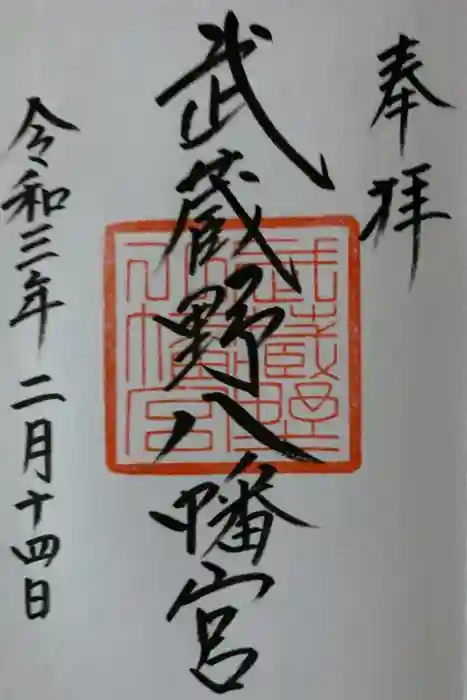 奉拝
武蔵野八幡宮
武蔵野
八幡宮
令和三年 二月十四日